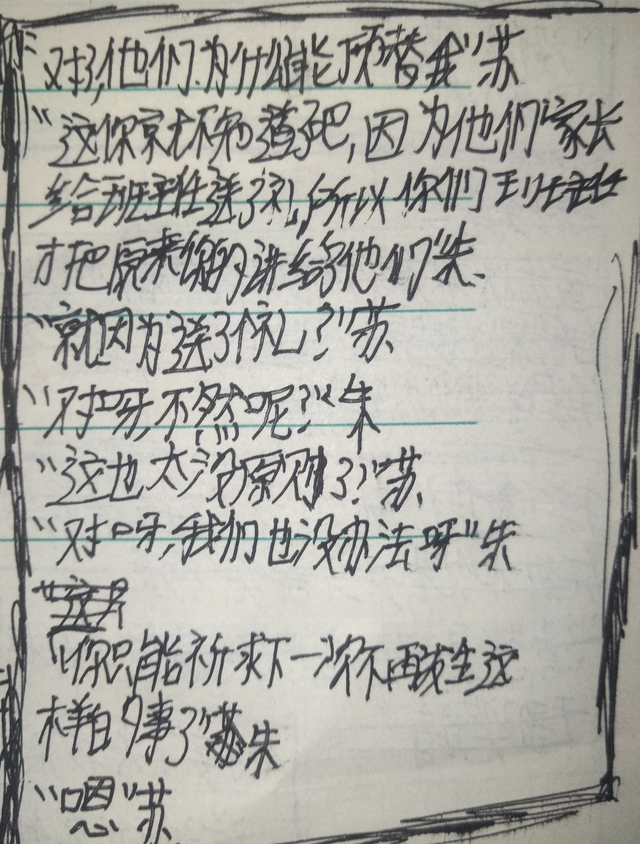 “对了,他们为什么能顶替我”苏
“这你就不知道了吧,因为他们家长
给班主任送了礼,所以你们班主任
才把原来你的讲给了他们”朱、
“就因为送了个礼?”苏、
“对呀不然呢?”朱
“这也太没原则了!”苏、
“对呀,我们也没办法呀”朱
“你只能祈求下一次不再发生这
样的事了”朱
“嗯”苏